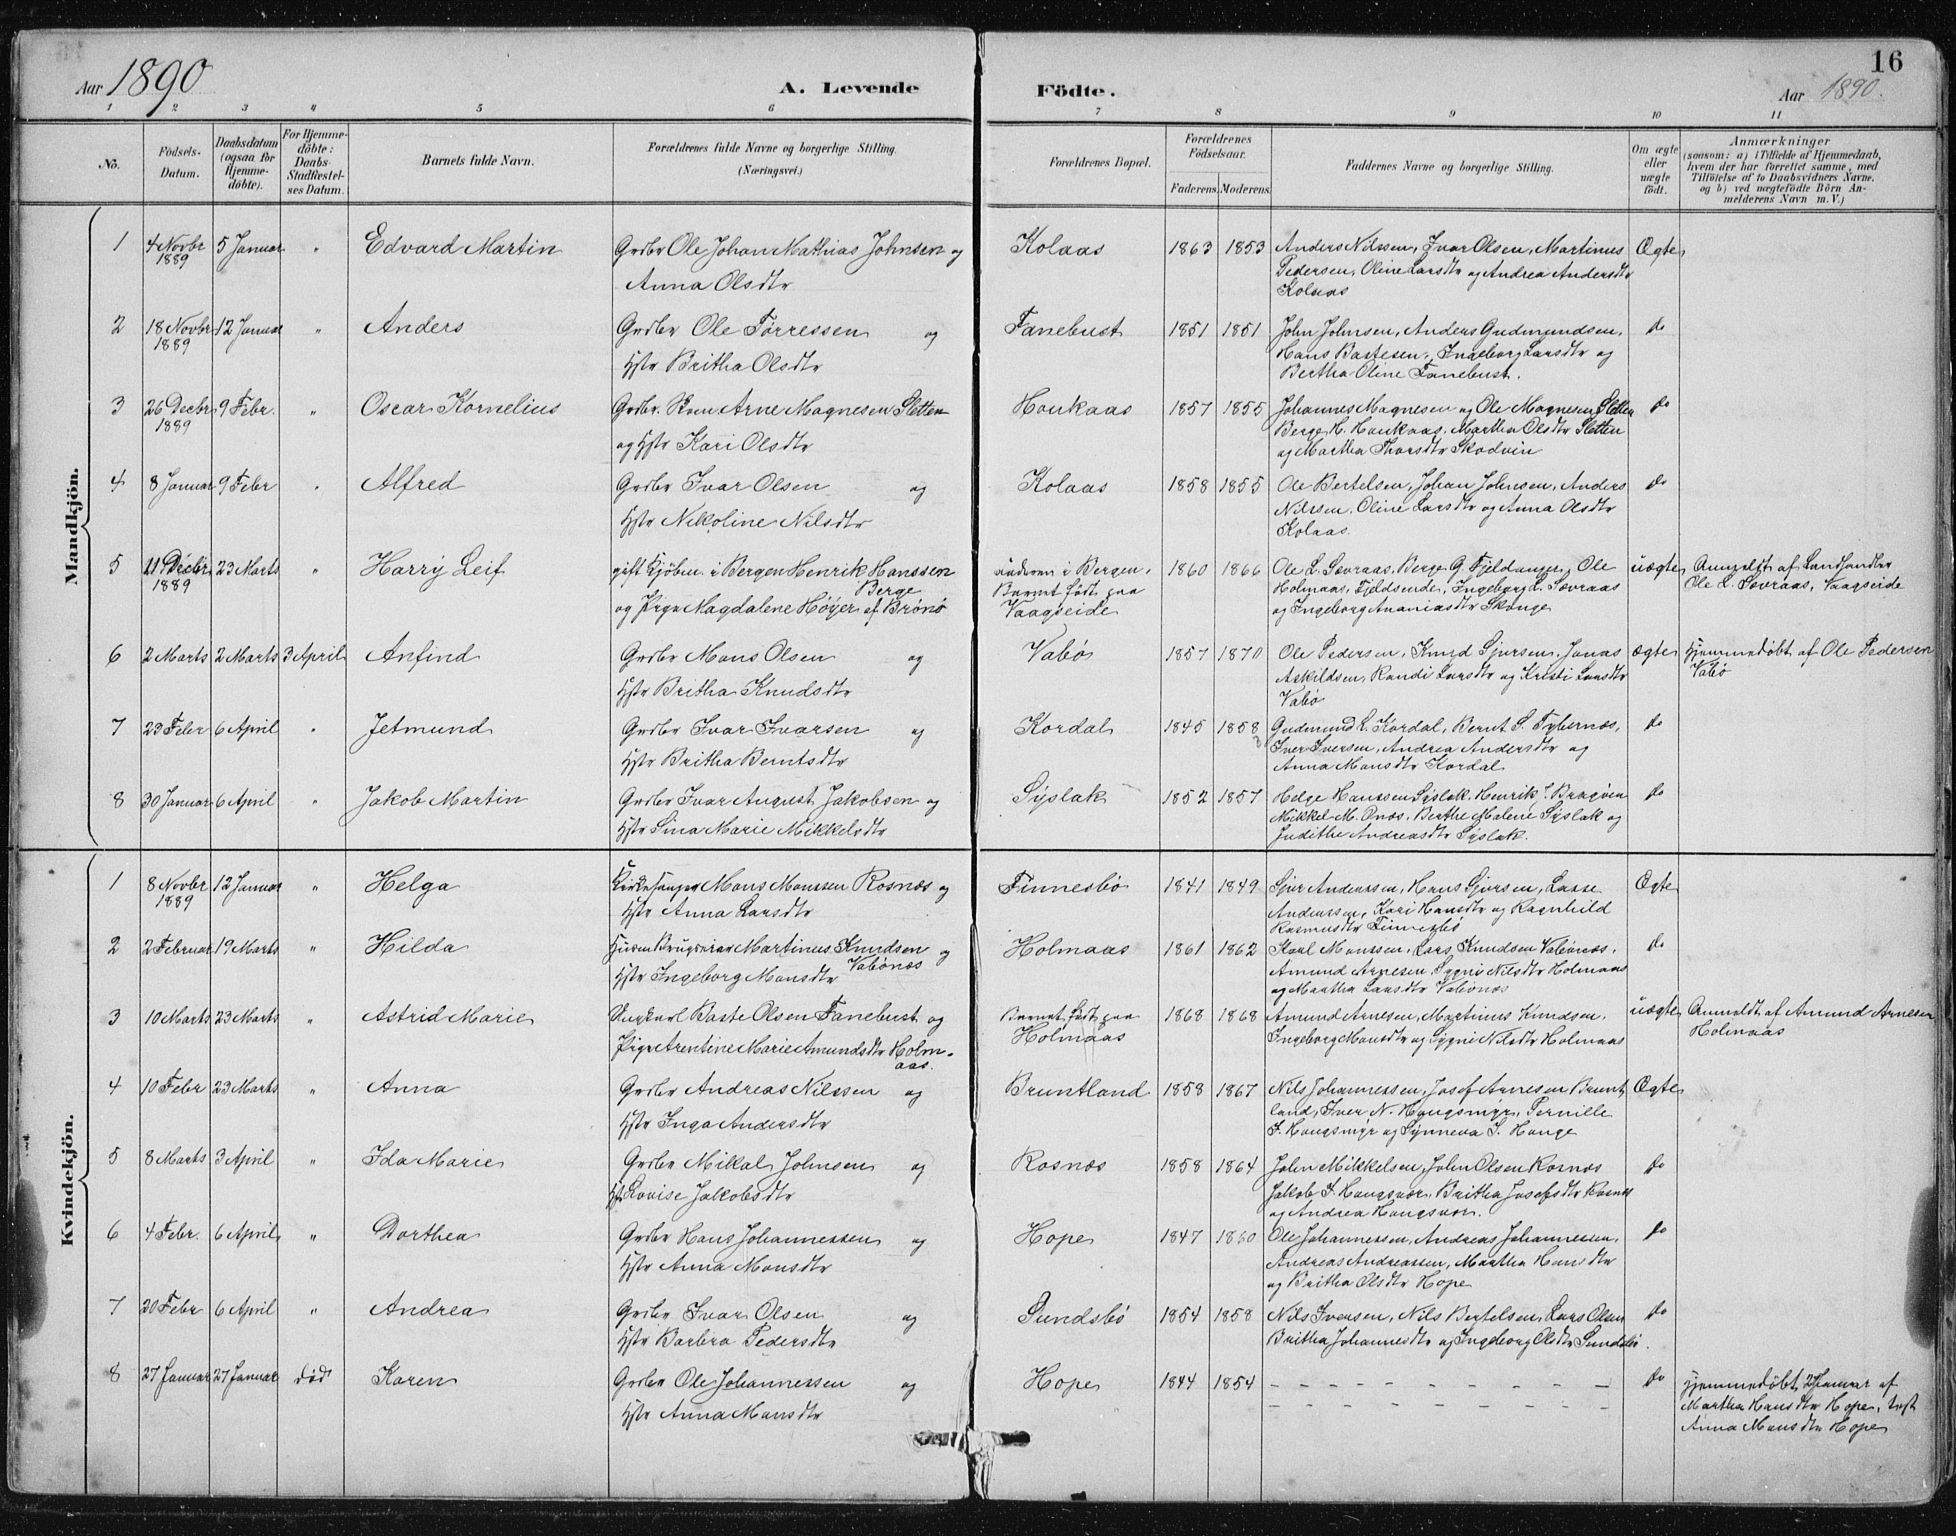 Aar 1890 A. Levende Födte. Aar 1890. 16
1 2 3 4 5 6 7 8 9 10 11
No. Födsels-Datum. Daabsdatum (ogsaa for Hjemmedöbte). For Hjemmedöbte: Daabs-Stadfestelses Datum. Barnets fulde Navn. Forældrenes fulde Navne og borgerlige Stilling. (Næringsvei.) Forældrenes Bopæl. Forældrenes Födselsaar. Faderens. Moderens. Faddernes Navne og borgerlige Stilling. Om ægte eller uægte födt. Anmærkninger (saasom: a) i Tilfælde af Hjemmedaab, hvem der har forrettet samme, med Tilföielse af to Daabsvidners Navne. og b) ved uægtefödte Börn Anmelderens Navn m. V.)
Mandkjön.
1 4 Novbr 5 Januar " Edvard Martin Grdbr Ole Johan Mathias Johnsen og Kolaas 1863 1853 Anders Nilssen, Ivar Olsen, Martinus Ægte
1889 Anna Olsdtr Pedersen, Oline Larsdtr og Andrea Andersdtr
Kolaas
2 18 Novbr 12 Januar " Anders Grdbr Ole Törressen og Fanebust 1851 1851 John Johnsen, Anders Gudmundsen, do
1889 Hstr Britha Olsdtr Hans Bastesen, Ingeborg Larsdtr og
Bertha Oline Fanebust.
3 26 Decbr 9 Febr. " Oscar Kornelius Grdbr. Søn Arne Magnesen Sletten Haukaas 1857 1855 Johannes Magnesen og Ole Magnesen Sletten do
1889 og Hstr Kari Olsdtr Berge H. Haukaas, Martha Olsdtr Sletten
og Martha Thorsdtr Skodvin
4 8 Januar 9 Febr " Alfred Grdbr Ivar Olsen og Kolaas 1858 1855 Ole Bertelsen, Johan Johnsen, Anders do
Hstr Nikoline Nilsdtr Nilssen, Oline Larsdtr og Anna Olsdtr
Kolaas.
5 11 Decbr 23 Marts " Harry Leif gift Kjöbm. i Bergen Henrik Hanssen Faderen i Bergen, 1860 1866 Ole L. Sævraas, Berge G. Fjeldanger, Ole uægte Anmeldt af Landhandler
1889 Berge Barnet født paa Holmaas, Fjeldsende, Ingeborg L. Sævraas Ole L. Sævraas, Vaagseide
og Pige Magdalene Höyer af Brönö Vaagseide og Ingeborg Ananiasdtr Skauge
6 2 Marts 2 Marts 3 April Anfind Grdbr Mons Olsen og Vabö 1857 1870 Ole Pedersen, Knud Sjursen, Jonas ægte Hjemmedöbt af Ole Pedersen
Hstr Britha Knudsdtr Askildsen, Randi Larsdtr og Kristi Larsdtr Vabö
Vabö
7 23 Febr 6 April " Jetmund Grdbr Ivar Ivarsen og Kordal 1845 1858 Gudmund L. Kordal, Bernt S. Fybernæs, do
Hstr Britha Berntsdtr Iver Iversen, Andrea Andersdtr og
Anna Monsdtr Kordal
8 30 Januar 6 April " Jakob Martin Grdbr Ivar August Jakobsen og Syslak 1852 1857 Helge Hanssen Syslak, Henrik J. Bragvin do
Hstr Sina Marie Mikkelsdtr Mikkel M. Onæs, Berthe Malene Syslak og
Judithe Andreasdtr Syslak.
Kvindekjön.
1 8 Novbr 12 Januar " Helga Kirkesanger Mons Monssen Rosnæs og Finnesbö 1841 1849 Sjur Anderssen, Hans Sjursen, Lasse Ægte
1889 Hstr Anna Larsdtr Anderssen, Kari Hansdtr og Ragnhild
Rasmusdtr Finnesbö
2 2 Februar 19 Marts " Hilda Martinus Knudsen og Holmaas 1861 1862 Karl Monssen, Lars Knudsen Vabönæs, do
Hstr Ingeborg Monsdtr Vabönæs Amund Arnesen, Sygni Nilsdtr Holmaas
og Martha Larsdtr Vabönæs
3 10 Marts 23 Marts " Astrid Marie Ungkarl Baste Olsen Fanebust og Barnet født paa 1868 1868 Amund Arnesen, Martinus Knudsen, uægte Anmeldt af Amund Arnesen
Pige Arentine Marie Amundsdtr Holm- Holmaas Ingeborg Monsdtr og Sygni Nilsdtr Holmaas Holmaas
aas.
4 10 Febr 23 Marts " Anna Grdbr Andreas Nilssen og Bruntland 1858 1867 Nils Johannessen, Josef Arnesen Brunt- Ægte
Hstr Inga Andersdtr land, Iver N. Haugsmyr, Pernille
I. Haugsmyr og Synneva S. Hauge
5 8 Marts 3 April " Ida Marie Grdbr Mikal Johnsen og Rosnæs 1858 1864 John Mikkelsen, John Olsen Rosnæs do
Hstr Lovise Jakobsdtr Jakob I. Haugsvær, Britha Josefsdtr Rosnæs
og Andrea Haugsvær.
6 4 Febr. 6 April " Dorthea Grdbr Hans Johannessen og Hope 1847 1860 Ole Johannessen, Andreas Johannessen, do
Hstr Anna Monsdtr Andreas Andreassen, Martha Hansdtr
og Britha Olsdtr Hope
7 20 Febr 6 April " Andrea Grdbr Ivar Olsen og Sundsbö 1854 1858 Nils Iversen, Nils Bertelsen, Lars Olsen do
Hstr Barbra Pedersdtr Britha Johannesdtr og Ingeborg Olsdtr Sundsbö.
8 27 Januar 27 Januar död Karen Grdbr Ole Johannessen og Hope 1844 1854 - - - - - - - - - do Hjemmedöbt 27 Januar af
Hstr Anna Monsdtr - - - - - - - - - Martha Hansdtr Hope,
Anna Monsdtr Hope